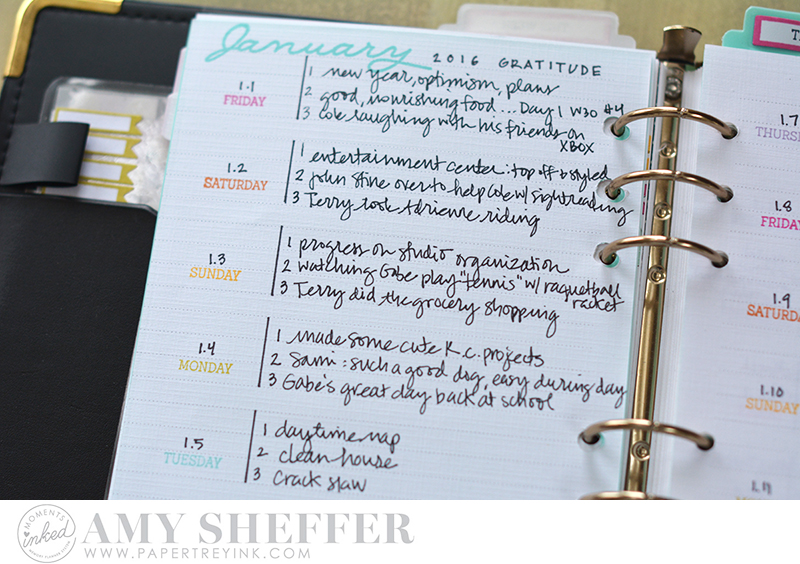 January 2016 GRATITUDE
1.1
FRIDAY
1 new year, optimism, plans
2 good, nourishing food... Day 1 W30 #4
3 Cole laughing with his friends on
XBOX
1.2
SATURDAY
1 entertainment center: top off & styled
2 John Stine over to help Cole w/ sightreading
3 Terry took Adrienne riding
1.3
SUNDAY
1 progress on studio organization
2 watching Gabe play "tennis" w/ raquetball
racket
3 Terry did the grocery shopping
1.4
MONDAY
1 made some cute R.C. projects
2 Sami: such a good dog, easy during day
3 Gabe's great day back at school
1.5
TUESDAY
1 daytime nap
2 clean house
3 Crack slaw
1.7
THURSD
1.8
FRIDAY
1.9
SATURDA
1.10
SUNDAY
1.11
MON
MOMENTS
inked
AMY SHEFFER
WWW.PAPERTREYINK.COM